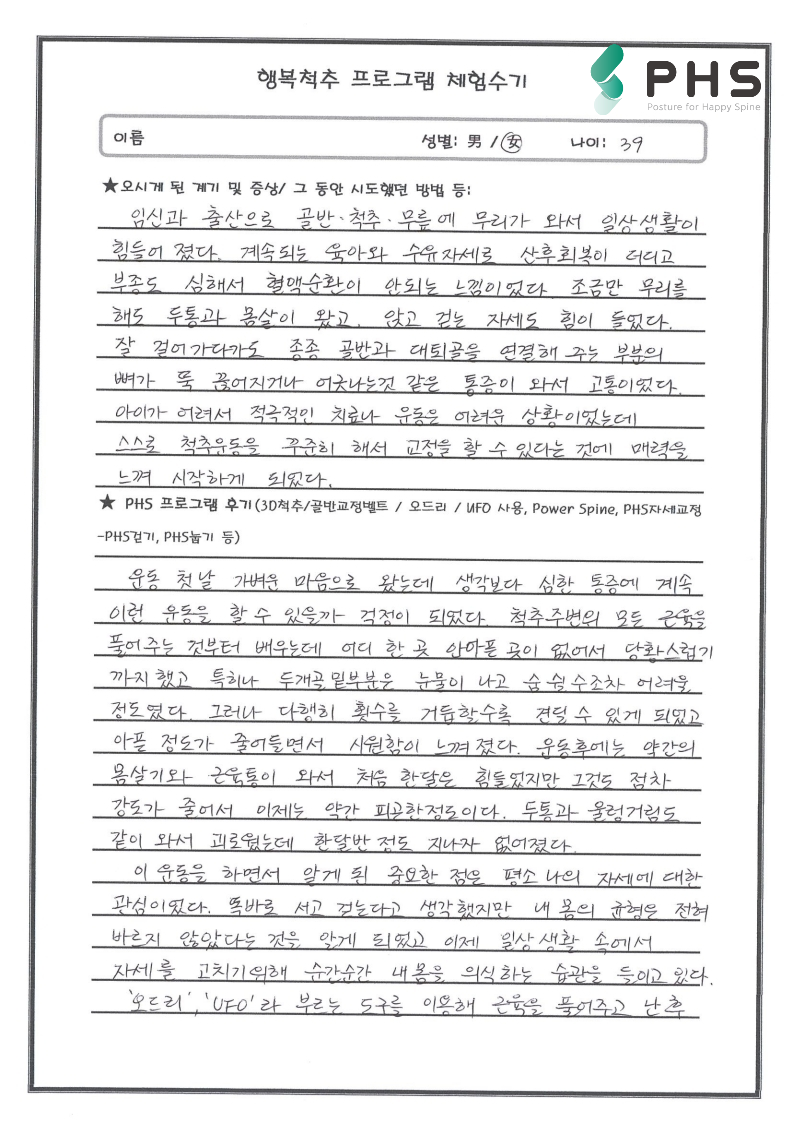 행복척추 프로그램 체험수기
PHS
Posture for Happy Spine
이름 성별: 男 / 女 나이: 39
★오시게 된 계기 및 증상/ 그 동안 시도했던 방법 등:
임신과 출산으로 골반·척추·무릎에 무리가 와서 일상생활이
힘들어 졌다. 계속되는 육아와 수유자세로 산후회복이 더디고
부종도 심해서 혈액순환이 안되는 느낌이었다. 조금만 무리를
해도 두통과 몸살이 왔고, 앉고 걷는 자세도 힘이 들었다.
잘 걸어가다가도 종종 골반과 대퇴골을 연결해 주는 부분의
뼈가 뚝 끊어지거나 어긋나는것 같은 통증이 와서 고통이었다.
아이가 어려서 적극적인 치료나 운동은 어려운 상황이었는데
스스로 척추운동을 꾸준히 해서 교정을 할 수 있다는 것에 매력을
느껴 시작하게 되었다.
★ PHS 프로그램 후기(3D척추/골반교정벨트 / 오드리 / UFO 사용, Power Spine, PHS자세교정
-PHS걷기, PHS눕기 등)
운동 첫날 가벼운 마음으로 왔는데 생각보다 심한 통증에 계속
이런 운동을 할 수 있을까 걱정이 되었다. 척추주변의 모든 근육을
풀어주는 것부터 배우는데 어디 한 곳 안아픈 곳이 없어서 당황스럽기
까지 했고 특히나 두개골 밑부분은 눈물이 나고 숨 쉴 수조차 어려울
정도였다. 그러나 다행히 횟수를 거듭할수록 견딜 수 있게 되었고
아픈 정도가 줄어들면서 시원함이 느껴졌다. 운동후에는 약간의
몸살기와 근육통이 와서 처음 한달은 힘들었지만 그것도 점차
강도가 줄어서 이제는 약간 피곤한정도이다. 두통과 울렁거림도
같이 와서 괴로웠는데 한달반 정도 지나자 없어졌다.
이 운동을 하면서 알게 된 중요한 점은 평소 나의 자세에 대한
관심이었다. 똑바로 서고 걷는다고 생각했지만 내 몸의 균형은 전혀
바르지 않았다는 것을 알게 되었고 이제 일상생활 속에서
자세를 고치기위해 순간순간 내몸을 의식하는 습관을 들이고 있다.
'오드리', 'UFO'라 부르는 도구를 이용해 근육을 풀어주고 난 후